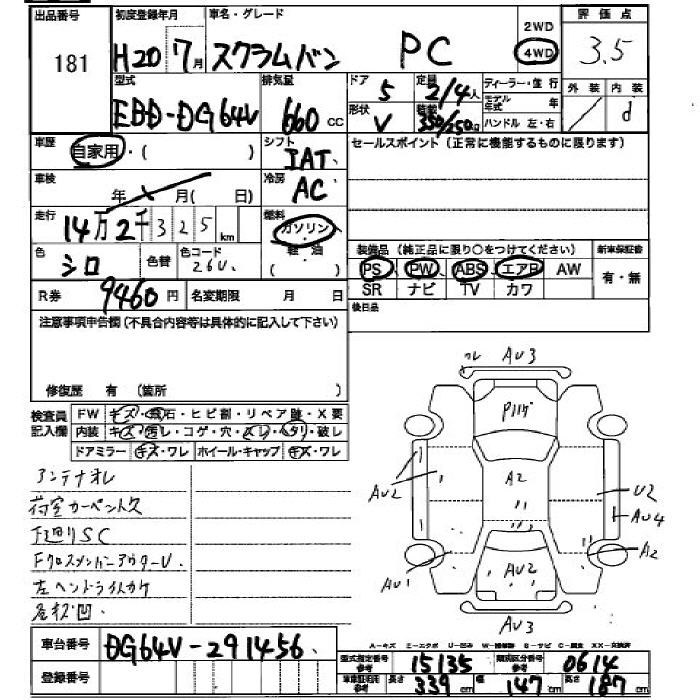 出品番号 初度登録年月 車名・グレード 2WD 評価点
181 H20 7月 スクラムバン PC 4WD 3.5
型式 排気量 ドア 定員 ディーラー・並行 外装 内装
EBD-DG64V 660cc 5 2/4人 モデル年式 年
形状 積載 ハンドル 左・右 d
V 350/250kg
車歴 自家用・( ) シフト IAT セールスポイント(正常に機能するものに限ります)
車検 年 月(日) 冷房 AC
走行 14万2千325km 燃料 ガソリン・軽油
色 シロ 色替 色コード 26U 装備品(純正品に限り○をつけてください) 新車保証書
PS PW ABS エアB AW 有・無
R券 9460円 名変期限 月 日 SR ナビ TV カワ
注意事項申告欄(不具合内容等は具体的に記入して下さい) 後日品
修復歴 有 (箇所 )
検査員記入欄 FW キズ・飛石・ヒビ割・リペア跡・X要
内装 キズ・汚レ・コゲ・穴・スレ・ヘタリ・破レ
ドアミラー キズ・ワレ ホイール・キャップ キズ・ワレ
アンテナオレ
荷室カーペント欠
下廻りSC
FクロスメンバーアウターU
左ヘッドライトカケ
凹
AU3
P11
AU2 A2 U2
AU4
AU1 AU2 A2
AU3
車台番号 DG64V-291456
登録番号
A-キズ E-エクボ U-凹み S-サビ
型式指定番号 参考 15135 類別区分番号 参考 0614
車庫証明用 参考 長さ 339cm 幅 147cm 高さ 187cm